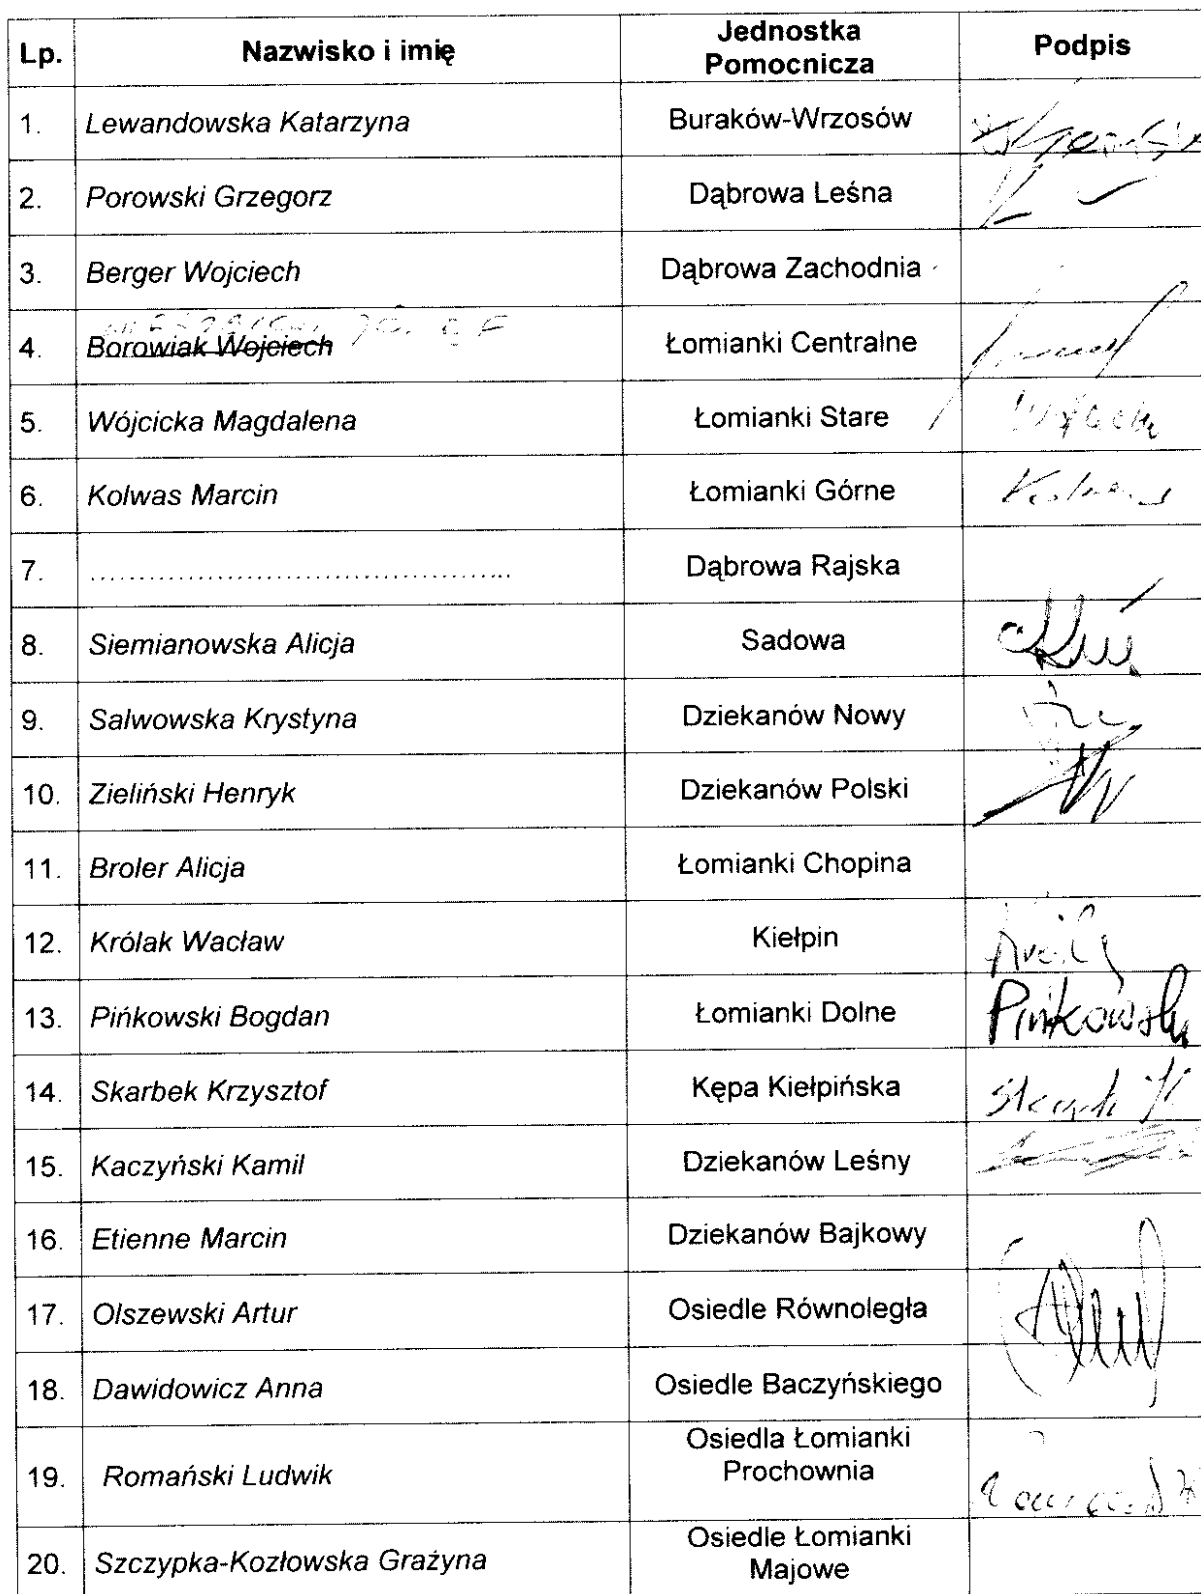 Lp. Nazwisko i imię Jednostka Pomocnicza Podpis
1. Lewandowska Katarzyna Buraków-Wrzosów
2. Porowski Grzegorz Dąbrowa Leśna
3. Berger Wojciech Dąbrowa Zachodnia
4. Borowiak Wojciech Łomianki Centralne
5. Wójcicka Magdalena Łomianki Stare
6. Kolwas Marcin Łomianki Górne
7. ............................................. Dąbrowa Rajska
8. Siemianowska Alicja Sadowa
9. Salwowska Krystyna Dziekanów Nowy
10. Zieliński Henryk Dziekanów Polski
11. Broler Alicja Łomianki Chopina
12. Królak Wacław Kiełpin
13. Pińkowski Bogdan Łomianki Dolne Pinkowski
14. Skarbek Krzysztof Kępa Kiełpińska
15. Kaczyński Kamil Dziekanów Leśny
16. Etienne Marcin Dziekanów Bajkowy
17. Olszewski Artur Osiedle Równoległa
18. Dawidowicz Anna Osiedle Baczyńskiego
19. Romański Ludwik Osiedla Łomianki Prochownia
20. Szczypka-Kozłowska Grażyna Osiedle Łomianki Majowe